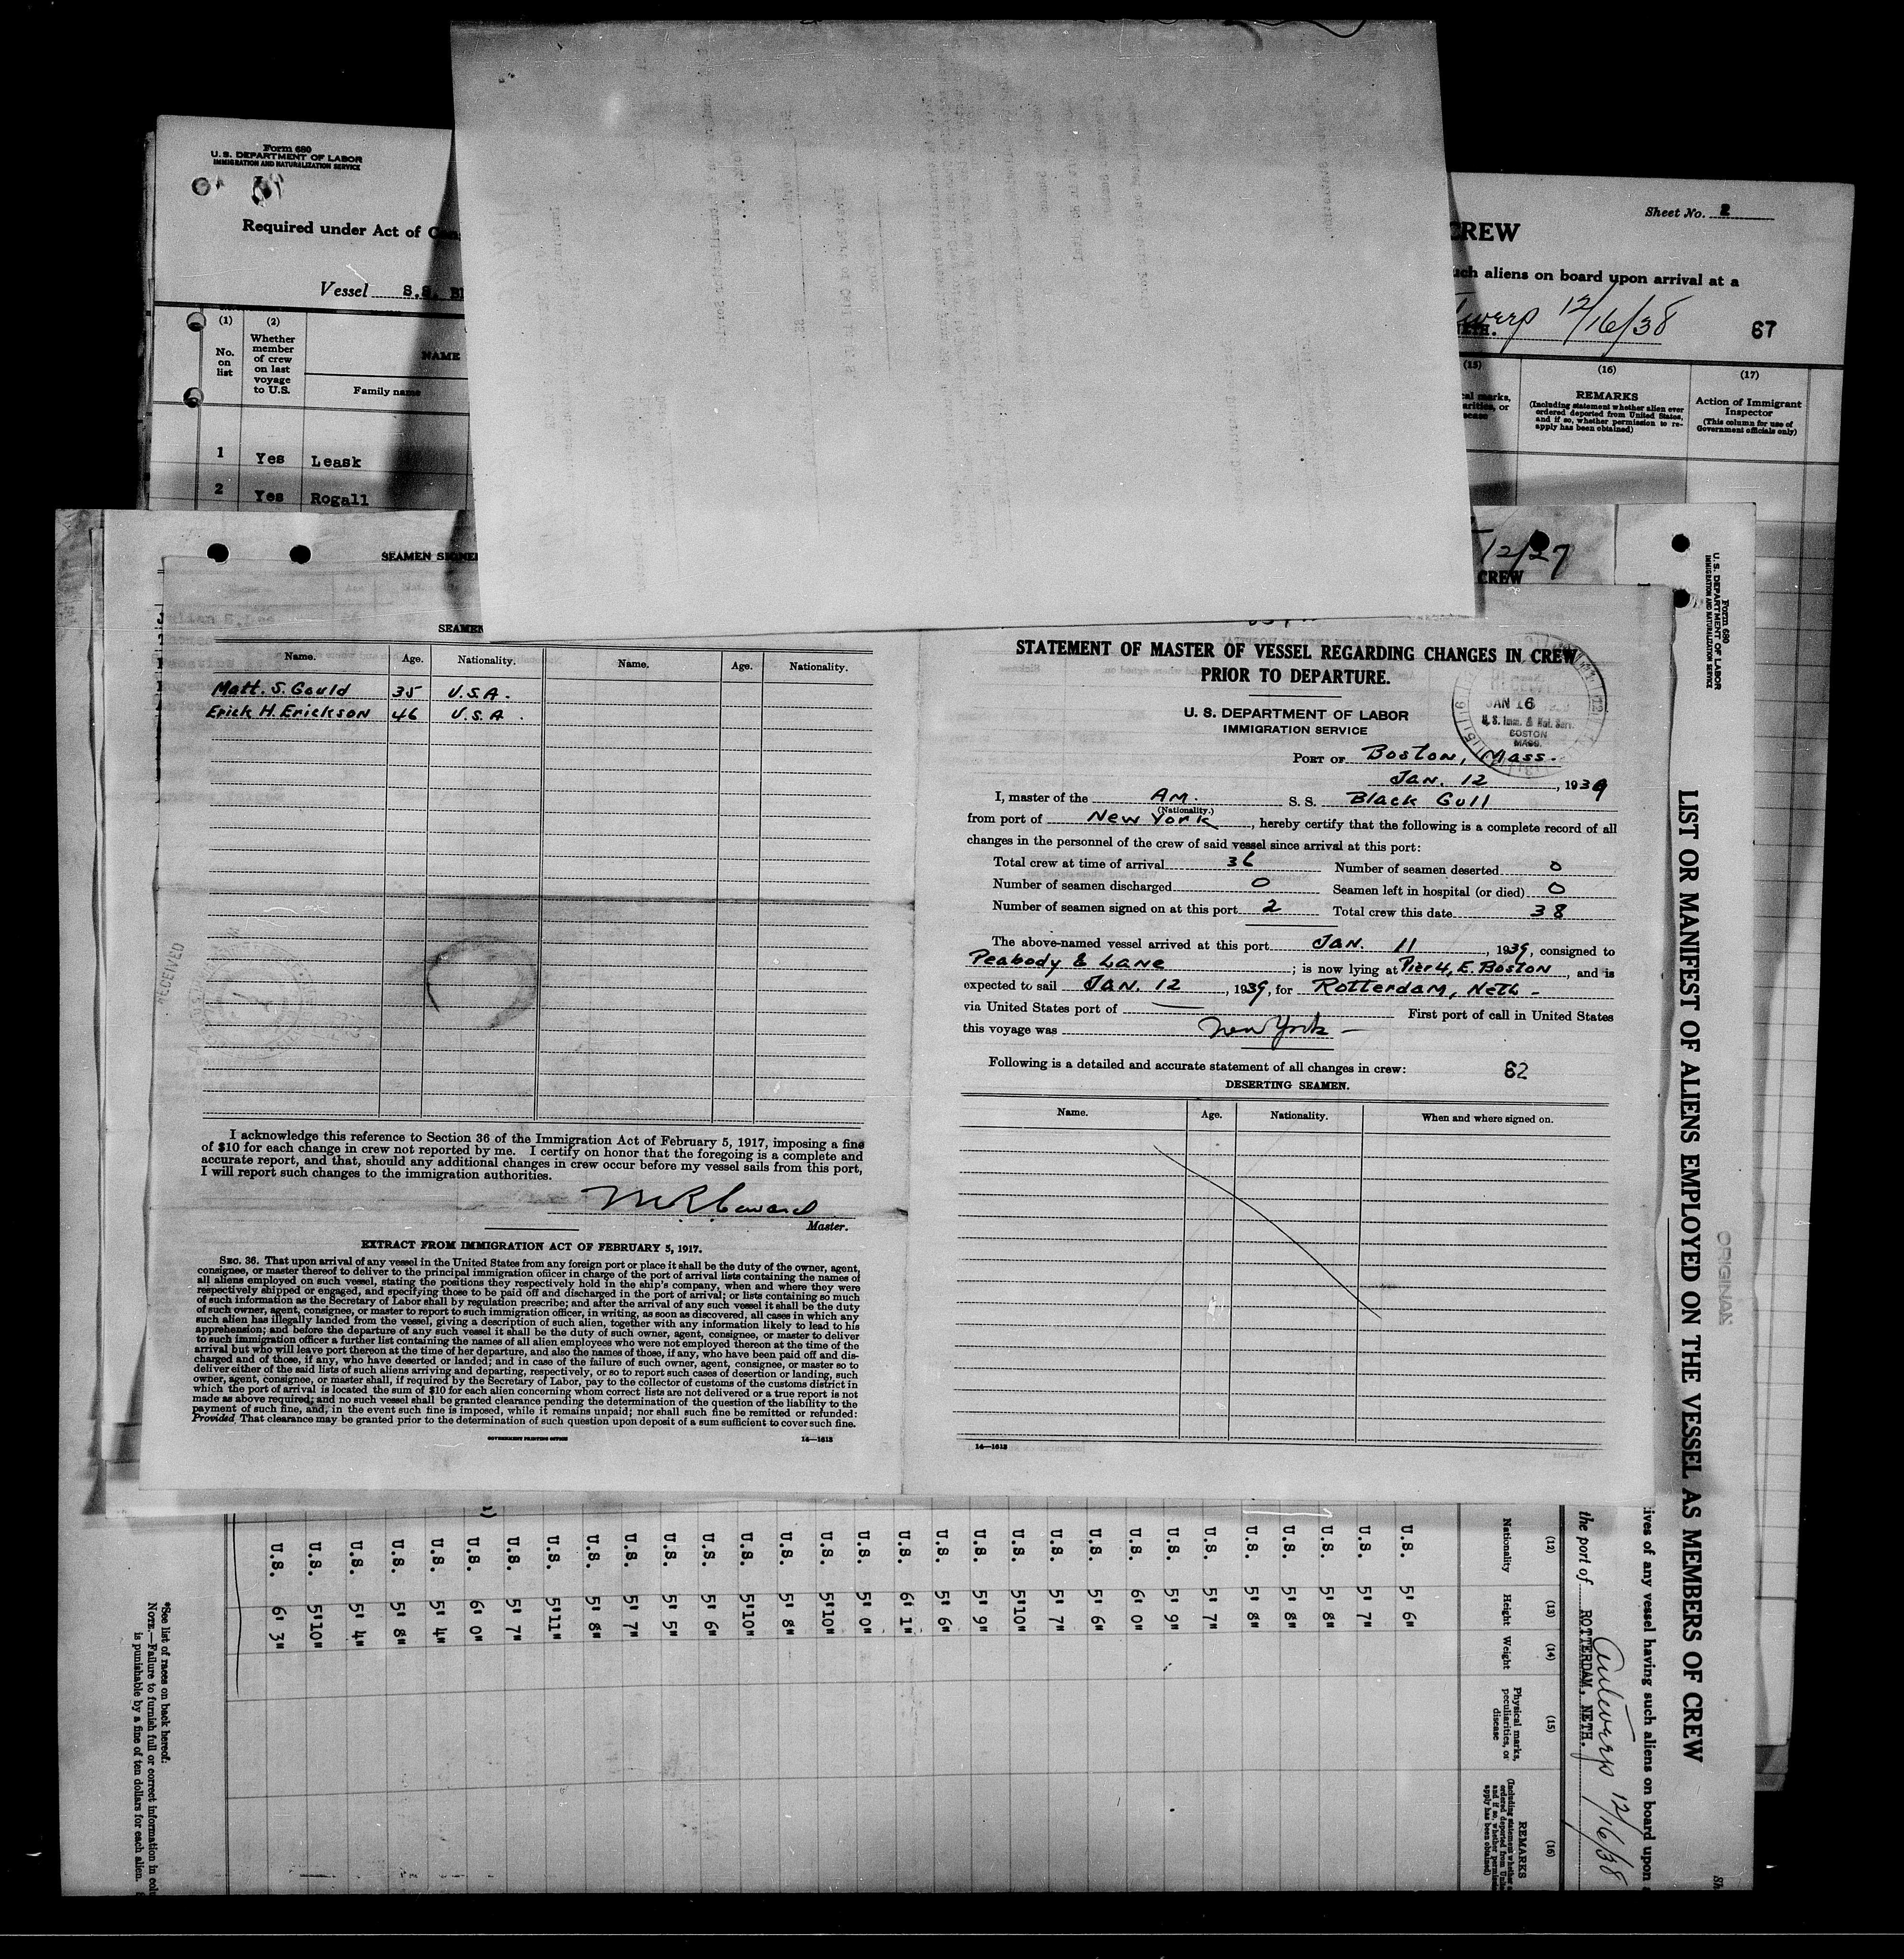 Form 680
U. S. DEPARTMENT OF LABOR
IMMIGRATION AND NATURALIZATION SERVICE
Required under Act of
Vessel S.S.
(1) (2)
No. on list
Whether member of crew on last voyage to U.S.
NAME
Family name
1 Yes Leask
2 Yes Rogall
Sheet No. 2
CREW
such aliens on board upon arrival at a
12/16/38
67
(15) (16) (17)
REMARKS
(Including statement whether alien ever ordered deported from United States, and if so, whether permission to reapply has been obtained)
Action of Immigrant Inspector
(This column for use of Government officials only)
12/27
CREW
SEAMEN
SEAMEN
Name. Age. Nationality. Name. Age. Nationality.
Matt. S. Gould 35 U.S.A.
Erick H. Erickson 46 U.S.A.
RECEIVED
I acknowledge this reference to Section 36 of the Immigration Act of February 5, 1917, imposing a fine
of $10 for each change in crew not reported by me. I certify on honor that the foregoing is a complete and
accurate report, and that, should any additional changes in crew occur before my vessel sails from this port,
I will report such changes to the immigration authorities.
Master.
EXTRACT FROM IMMIGRATION ACT OF FEBRUARY 5, 1917.
SEC. 36. That upon arrival of any vessel in the United States from any foreign port or place it shall be the duty of the owner, agent,
consignee, or master thereof to deliver to the principal immigration officer in charge of the port of arrival lists containing the names of
all aliens employed on such vessel, stating the positions they respectively hold in the ship's company, when and where they were
respectively shipped or engaged, and specifying those to be paid off and discharged in the port of arrival; or lists containing so much
of such information as the Secretary of Labor shall by regulation prescribe; and after the arrival of any such vessel it shall be the duty
of such owner, agent, consignee, or master to report to such immigration officer, in writing, as soon as discovered, all cases in which any
such alien has illegally landed from the vessel, giving a description of such alien, together with any information likely to lead to his
apprehension; and before the departure of any such vessel it shall be the duty of such owner, agent, consignee, or master to deliver
to such immigration officer a further list containing the names of all alien employees who were not employed thereon at the time of the
arrival but who will leave port thereon at the time of her departure, and also the names of those, if any, who have been paid off and dis-
charged and of those, if any, who have deserted or landed; and in case of the failure of such owner, agent, consignee, or master so to
deliver either of the said lists of such aliens arriving and departing, respectively, or so to report such cases of desertion or landing, such
owner, agent, consignee, or master shall, if required by the Secretary of Labor, pay to the collector of customs of the customs district in
which the port of arrival is located the sum of $10 for each alien concerning whom correct lists are not delivered or a true report is not
made as above required; and no such vessel shall be granted clearance pending the determination of the question of the liability to the
payment of such fine, and, in the event such fine is imposed, while it remains unpaid; nor shall such fine be remitted or refunded:
Provided That clearance may be granted prior to the determination of such question upon deposit of a sum sufficient to cover such fine.
GOVERNMENT PRINTING OFFICE 14—1613
STATEMENT OF MASTER OF VESSEL REGARDING CHANGES IN CREW
PRIOR TO DEPARTURE.
U. S. DEPARTMENT OF LABOR
IMMIGRATION SERVICE
JAN 16
U. S. Imm. & Nat. Serv.
BOSTON
MASS.
PORT OF Boston, Mass.
Jan. 12, 1939
I, master of the Am. S. S. Black Gull
(Nationality.)
from port of New York, hereby certify that the following is a complete record of all
changes in the personnel of the crew of said vessel since arrival at this port:
Total crew at time of arrival 36 Number of seamen deserted 0
Number of seamen discharged 0 Seamen left in hospital (or died) 0
Number of seamen signed on at this port 2 Total crew this date 38
The above-named vessel arrived at this port Jan. 11, 1939, consigned to
Peabody & Lane; is now lying at Pier 4, E. Boston, and is
expected to sail Jan. 12, 1939, for Rotterdam, Neth.
via United States port of — First port of call in United States
this voyage was New York —
Following is a detailed and accurate statement of all changes in crew: 62
DESERTING SEAMEN.
Name. Age. Nationality. When and where signed on.
14—1613
Form 680
U. S. DEPARTMENT OF LABOR
IMMIGRATION AND NATURALIZATION SERVICE
ORIGINAL
LIST OR MANIFEST OF ALIENS EMPLOYED ON THE VESSEL AS MEMBERS OF CREW
of any vessel having such aliens on board upon
the port of ROTTERDAM, NETH.
Antwerp 12/16/38
(12) (13) (14) (15) (16)
Nationality Height Weight Physical marks, peculiarities, or disease REMARKS
U.S. 5' 6"
U.S. 5' 7"
U.S. 5' 8"
U.S. 5' 8"
U.S. 5' 8"
U.S. 5' 7"
U.S. 5' 9"
U.S. 6' 0"
U.S. 5' 6"
U.S. 5' 7"
U.S. 5'10"
U.S. 5' 9"
U.S. 5' 6"
U.S. 6' 1"
U.S. 5' 0"
U.S. 5'10"
U.S. 5' 8"
U.S. 5'10"
U.S. 5' 6"
U.S. 5' 5"
U.S. 5' 7"
U.S. 5' 8"
U.S. 5'11"
U.S. 5' 7"
U.S. 6' 0"
U.S. 5' 4"
U.S. 5' 8"
U.S. 5' 4"
U.S. 5'10"
U.S. 6' 3"
*See list of races on back hereof.
NOTE.—Failure to furnish full or correct information in
is punishable by a fine of ten dollars for each alien.